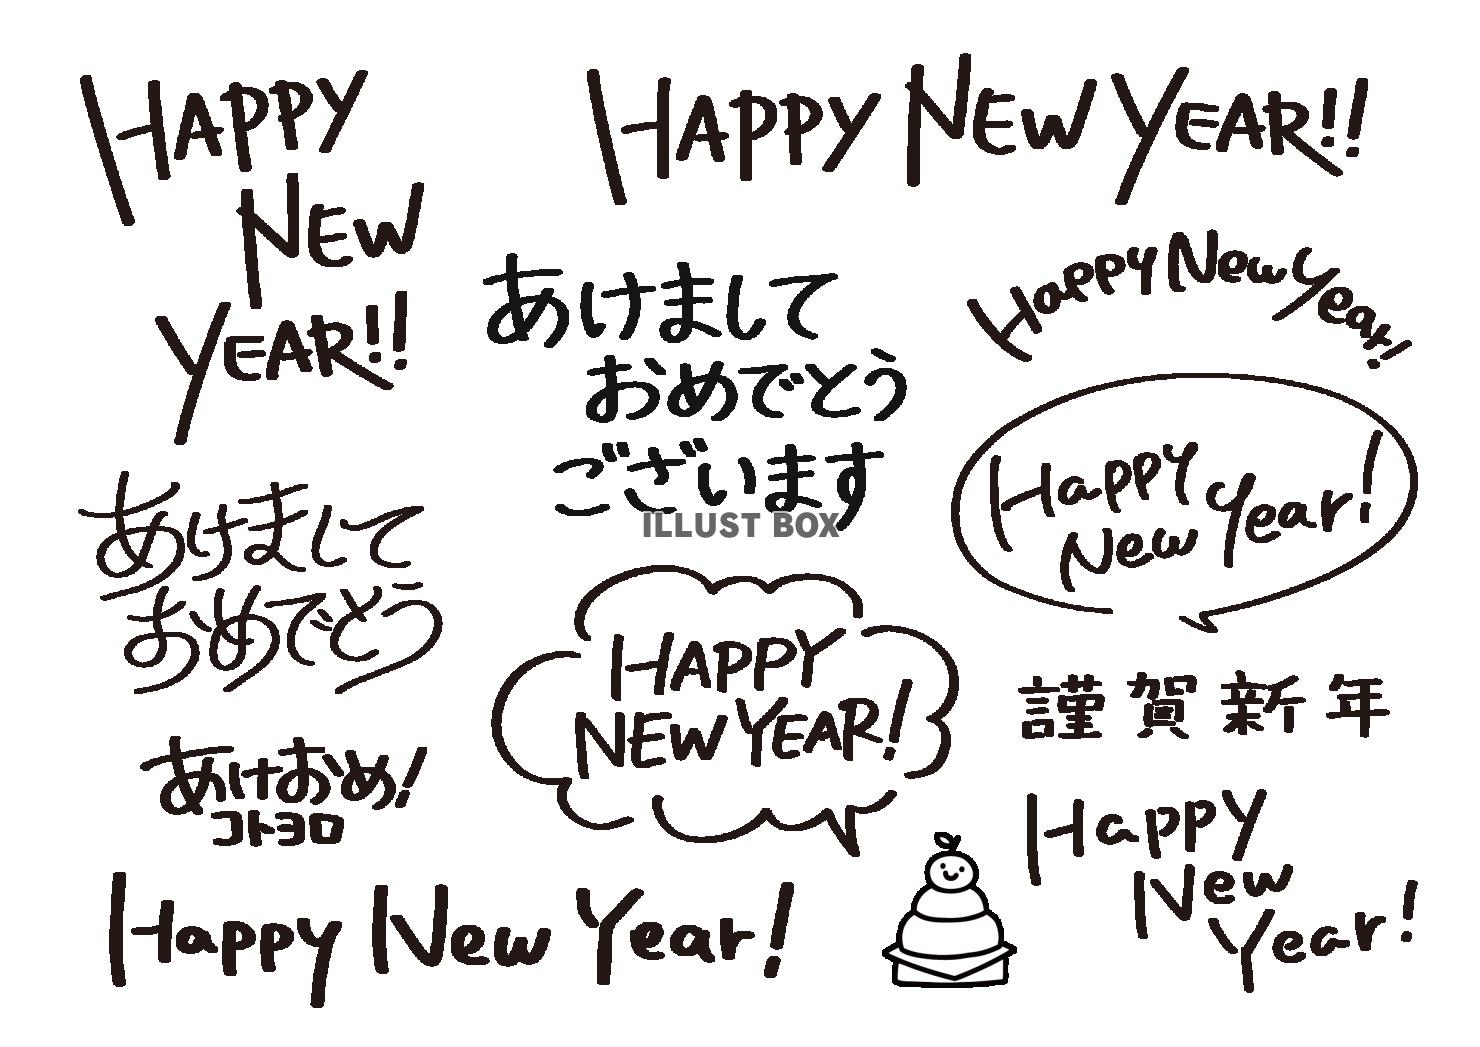 HAPPY
NEW
YEAR!!
HAPPY NEW YEAR!!
Happy New Year!
あけまして
おめでとう
ございます
ILLUST BOX
Happy
New Year!
あけまして
おめでとう
HAPPY
NEW YEAR!
謹賀新年
あけおめ!
コトヨロ
Happy
New
Year!
Happy New Year!